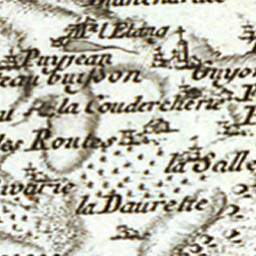 l'Etang
Puyjean
Guyon
eau buisson
la Coudercherie
les Routes
la Salle
la Daurette